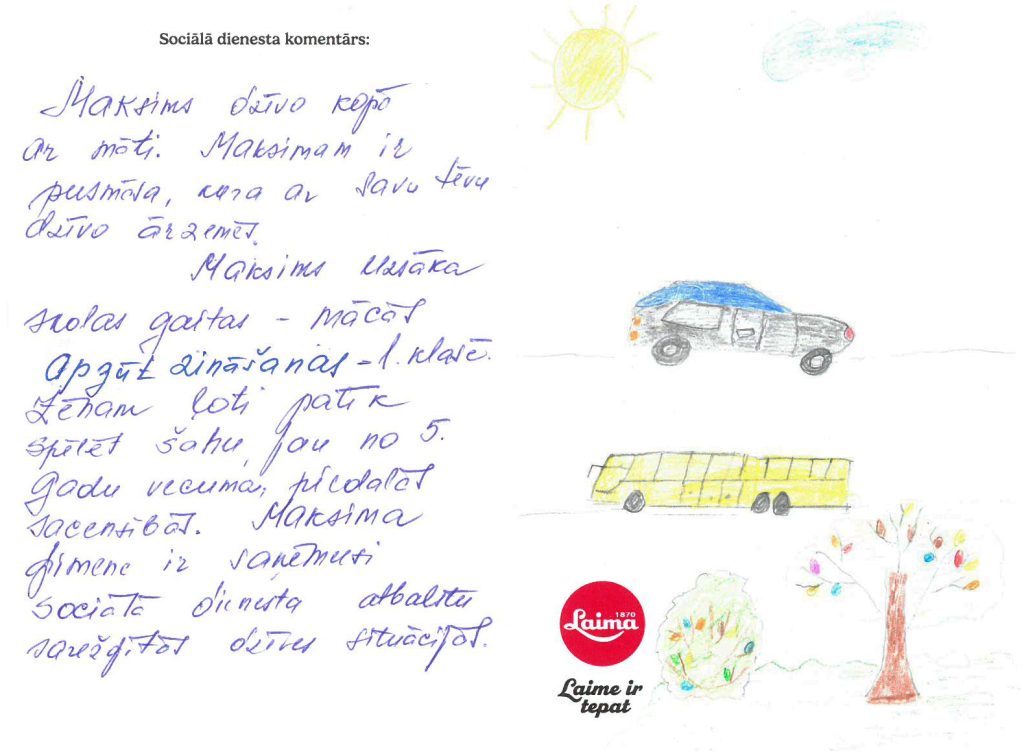 Sociālā dienesta komentārs:
Maksims dzīvo kopā
ar māti. Maksimam ir
pusmāsa, kura ar savu tēvu
dzīvo ārzemēs.
Maksims uzsāka
skolas gaitas - mācās
apgūt zināšanas - 1. klasē.
Zēnam ļoti patīk
spēlēt šahu, jau no 5.
gadu vecuma, piedalās
sacensībās. Maksima
ģimene ir saņēmusi
sociālā dienesta atbalstu
sarežģītās dzīves situācijās.
Laima
1870
Laime ir
tepat